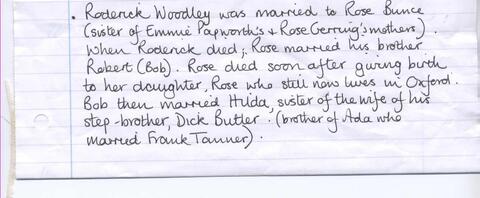 • Roderick Woodley was married to Rose Bunce
(sister of Emmie Papworth's & Rose Gerring's mothers).
When Roderick died, Rose married his brother
Robert (Bob). Rose died soon after giving birth
to her daughter, Rose who still now lives in Oxford.
Bob then married Hilda, sister of the wife of his
step-brother, Dick Butler. (brother of Ada who
married Frank Tanner).